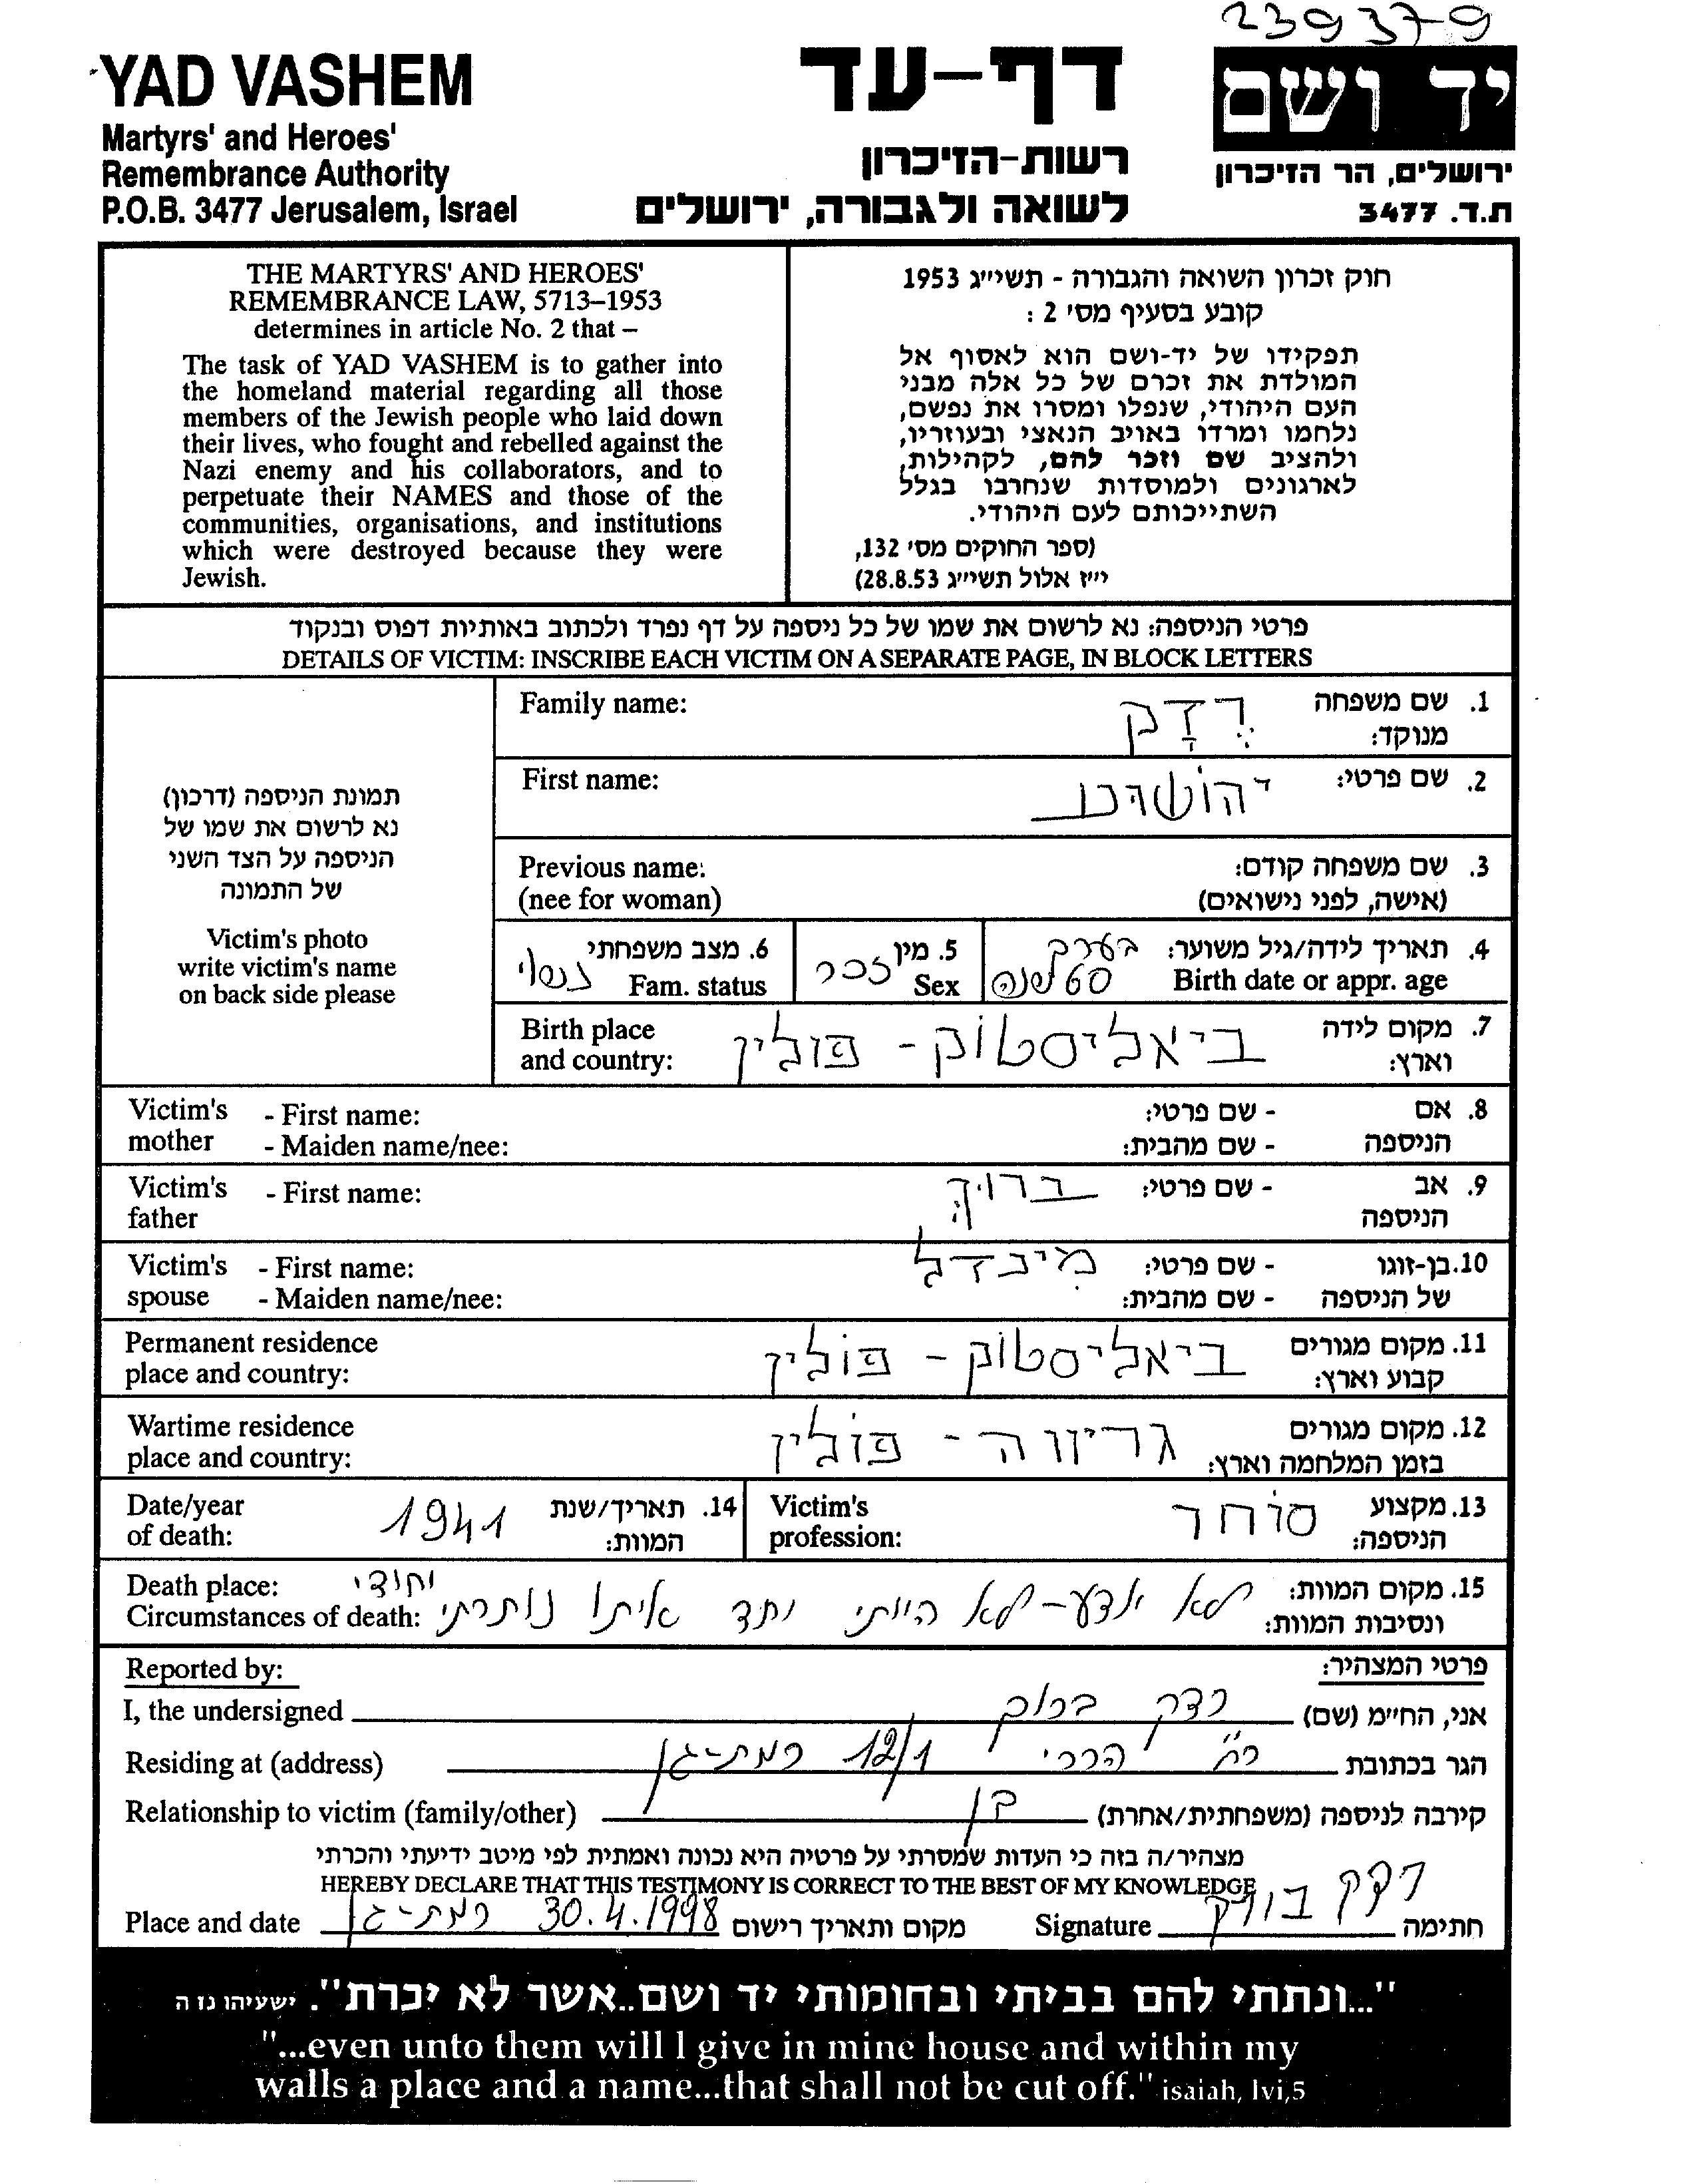 239379
YAD VASHEM
Martyrs' and Heroes'
Remembrance Authority
P.O.B. 3477 Jerusalem, Israel
דף-עד
רשות-הזיכרון
לשואה ולגבורה, ירושלים
יד ושם
ירושלים, הר הזיכרון
ת.ד. 3477
THE MARTYRS' AND HEROES'
REMEMBRANCE LAW, 5713–1953
determines in article No. 2 that –
The task of YAD VASHEM is to gather into
the homeland material regarding all those
members of the Jewish people who laid down
their lives, who fought and rebelled against the
Nazi enemy and his collaborators, and to
perpetuate their NAMES and those of the
communities, organisations, and institutions
which were destroyed because they were
Jewish.
חוק זכרון השואה והגבורה - תשי״ג 1953
קובע בסעיף מס׳ 2 :
תפקידו של יד-ושם הוא לאסוף אל
המולדת את זכרם של כל אלה מבני
העם היהודי, שנפלו ומסרו את נפשם,
נלחמו ומרדו באויב הנאצי ובעוזריו,
ולהציב שם וזכר להם, לקהילות,
לארגונים ולמוסדות שנחרבו בגלל
השתייכותם לעם היהודי.
(ספר החוקים מס׳ 132,
י״ז אלול תשי״ג 28.8.53)
פרטי הניספה: נא לרשום את שמו של כל ניספה על דף נפרד ולכתוב באותיות דפוס ובנקוד
DETAILS OF VICTIM: INSCRIBE EACH VICTIM ON A SEPARATE PAGE, IN BLOCK LETTERS
תמונת הניספה (דרכון)
נא לרשום את שמו של
הניספה על הצד השני
של התמונה
Victim's photo
write victim's name
on back side please
Family name: רֶזָק 1. שם משפחה
מנוקד:
First name: 2. שם פרטי:
Previous name: 3. שם משפחה קודם:
(nee for woman) (אישה, לפני נישואים)
4. תאריך לידה/גיל משוער: בערך
Birth date or appr. age 60 שנה
5. מין זכר
Sex
6. מצב משפחתי נשוי
Fam. status
Birth place ביאליסטוק - פולין 7. מקום לידה
and country: וארץ:
Victim's - First name: - שם פרטי: 8. אם
mother - Maiden name/nee: - שם מהבית: הניספה
Victim's - First name: ברוך - שם פרטי: 9. אב
father הניספה
Victim's - First name: - שם פרטי: 10. בן-זוגו
spouse - Maiden name/nee: - שם מהבית: של הניספה
Permanent residence ביאליסטוק - פולין 11. מקום מגורים
place and country: קבוע וארץ:
Wartime residence גריווה - פולין 12. מקום מגורים
place and country: בזמן המלחמה וארץ:
Date/year 1941 14. תאריך/שנת
of death: המוות:
Victim's סוחר 13. מקצוע
profession: הניספה:
Death place: 15. מקום המוות:
Circumstances of death: ונסיבות המוות:
לא יודע - לא הייתי יחד איתו נותרתי יחידי
Reported by: פרטי המצהיר:
I, the undersigned רזק ברוך אני, החי״מ (שם)
Residing at (address) הררי 12/1 רמת-גן הגר בכתובת
Relationship to victim (family/other) בן קירבה לניספה (משפחתית/אחרת)
מצהיר/ה בזה כי העדות שמסרתי על פרטיה היא נכונה ואמתית לפי מיטב ידיעתי והכרתי
HEREBY DECLARE THAT THIS TESTIMONY IS CORRECT TO THE BEST OF MY KNOWLEDGE
Place and date רמת-גן 30.4.1998 מקום ותאריך רישום Signature חתימה
"...ונתתי להם בביתי ובחומותי יד ושם..אשר לא יכרת". ישעיהו נז ה
"...even unto them will I give in mine house and within my
walls a place and a name...that shall not be cut off." isaiah, lvi,5